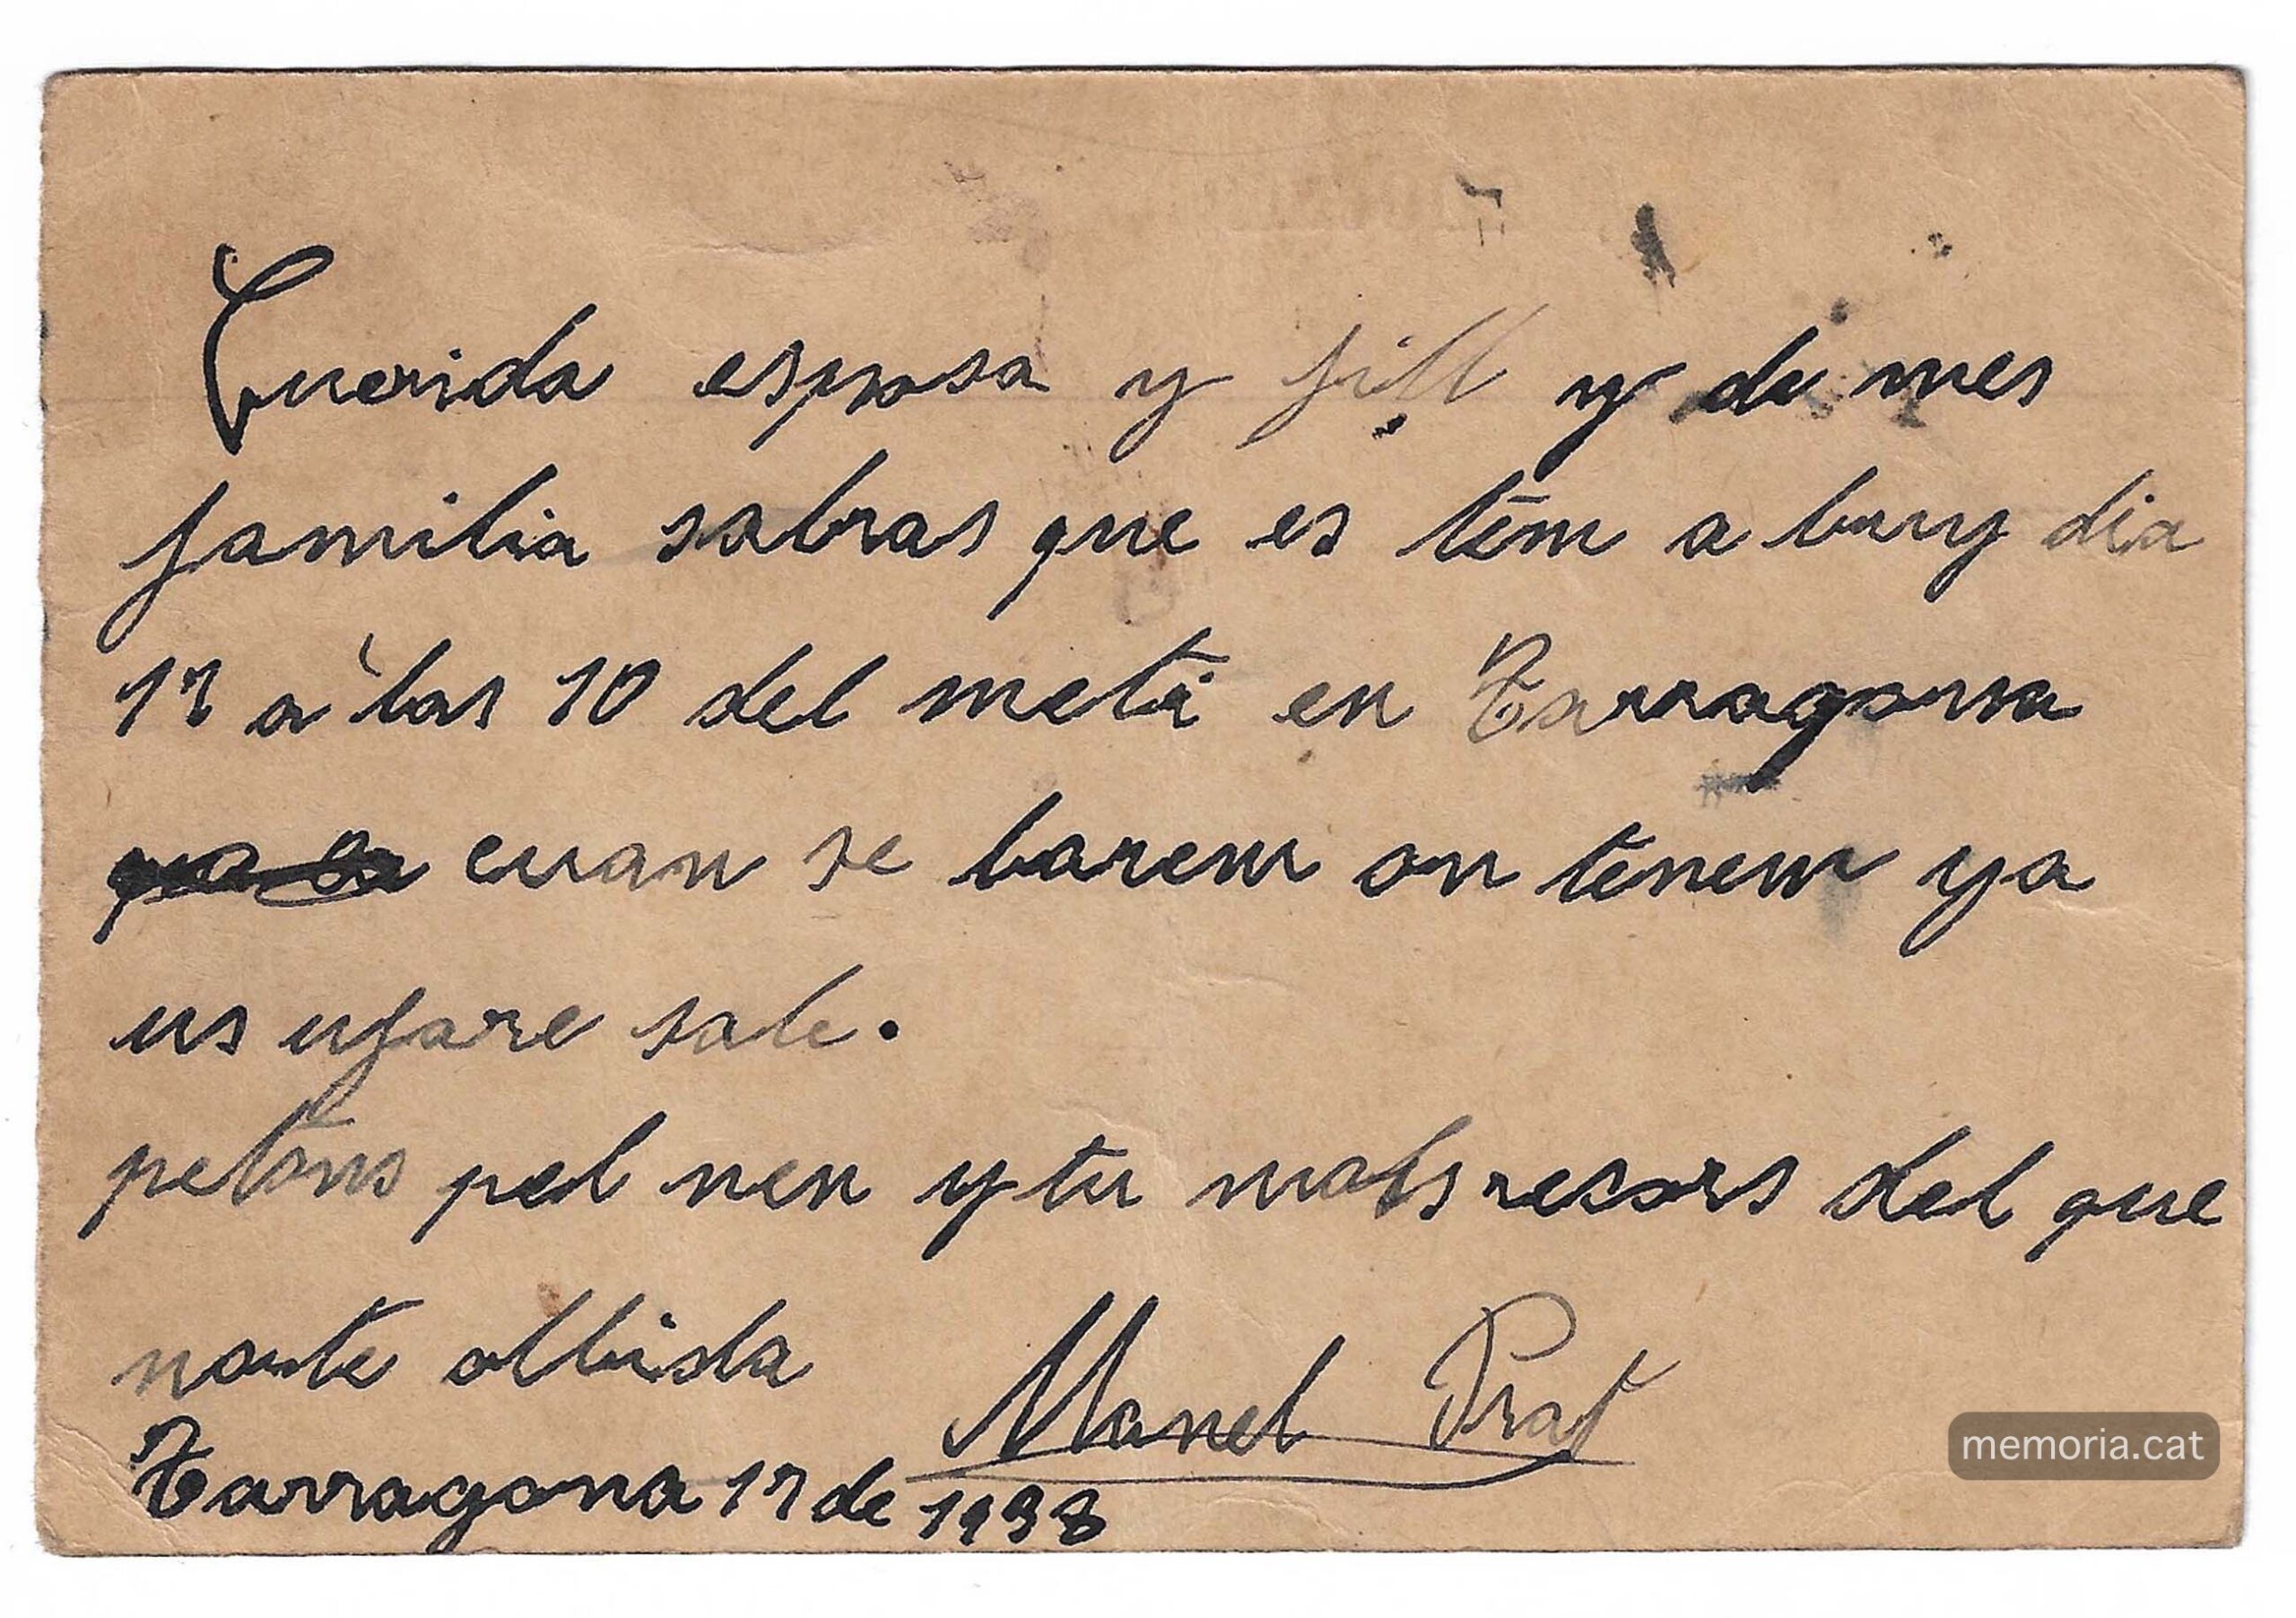 Querida esposa y fill y de mes
familia sabras que es tem a buy dia
17 a las 10 del mati en Tarragona
cuan se barem on tenem ya
us ufare sabe.
petons pel nen y tu mols recors del que
no te olbida Manel Prat
Tarragona 17 de 1938
memoria.cat